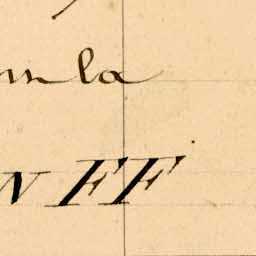 la
NFF